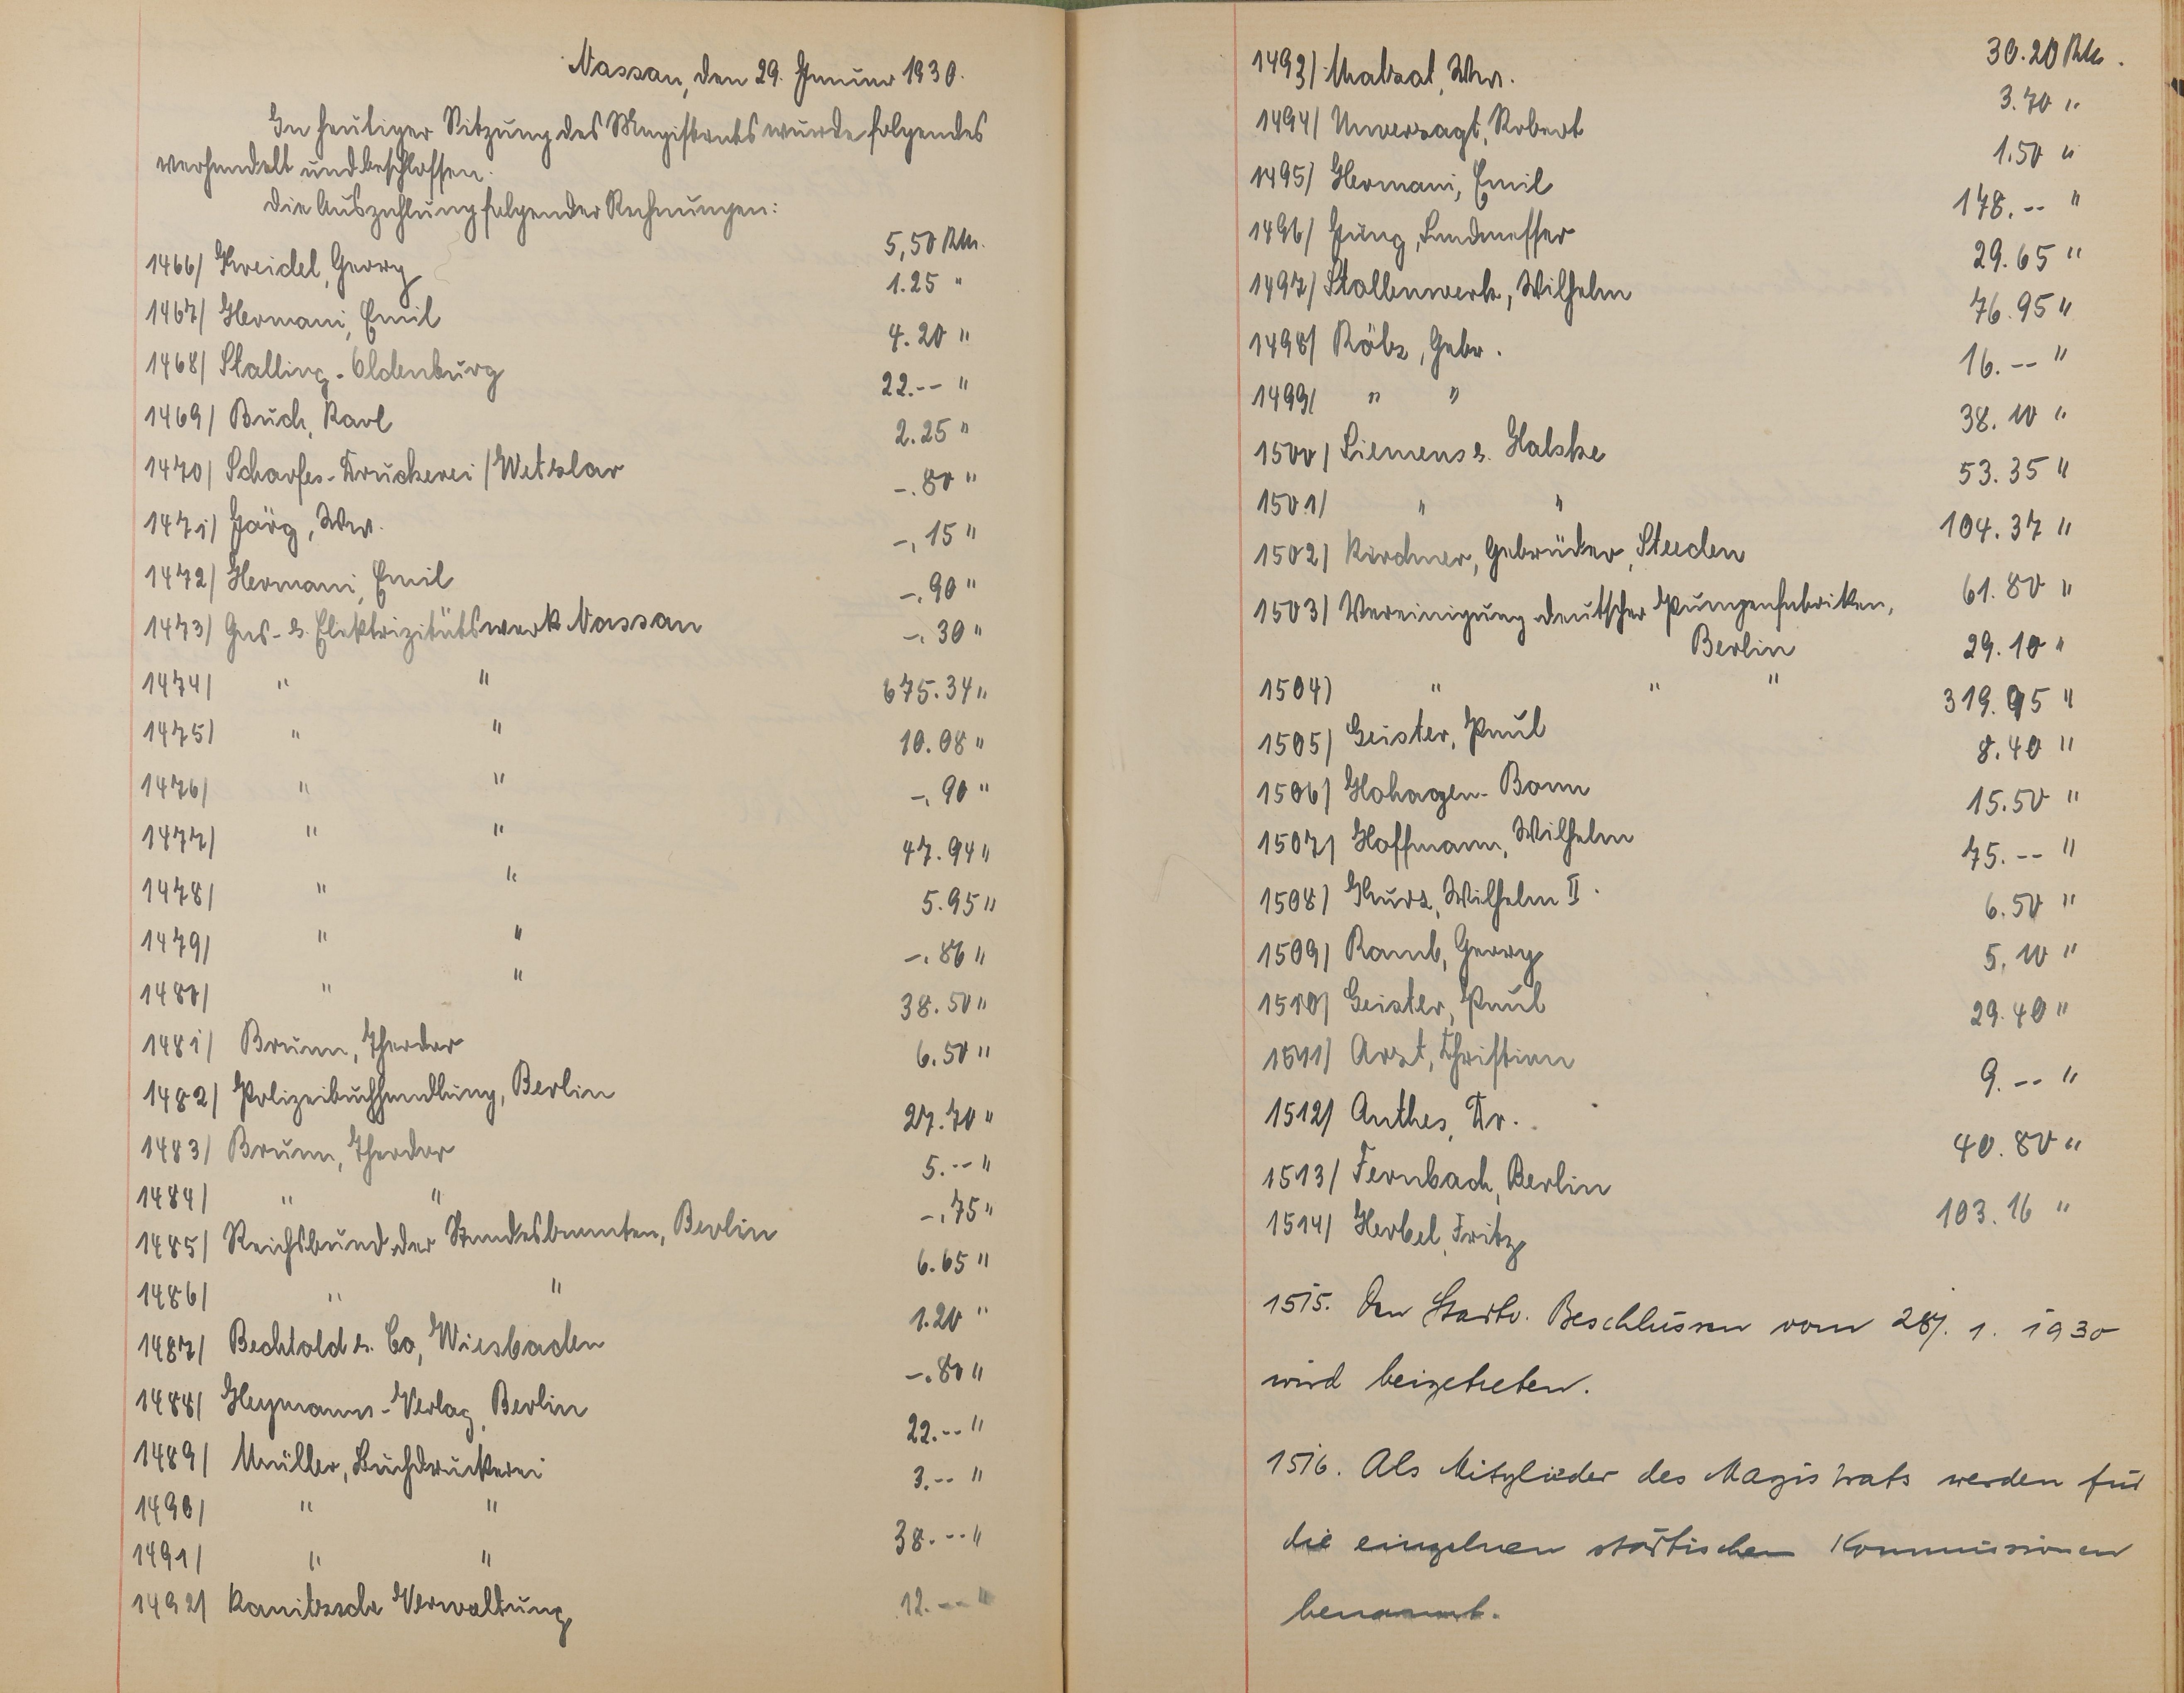 Nassau, den 29. Januar 1930.
In heutiger Sitzung des Magistrats wurde folgendes
verhandelt und beschlossen.
Die Auszahlung folgender Rechnungen:
1466/ Kreidel, Georg 5,50 RM.
1467/ Hermani, Emil 1.25 "
1468/ Stalling-Oldenburg 4.20 "
1469/ Buch, Karl 22.-- "
1470/ Scharfes-Druckerei/Wetzlar 2.25 "
1471/ Jörg, Ww. -.80 "
1472/ Hermani, Emil -.15 "
1473/ Gas- u. Elektrizitätswerk Nassau -.90 "
1474/ " " -.30 "
1475/ " " 675.34 "
1476/ " " 10.08 "
1477/ " " -.90 "
1478/ " " 47.94 "
1479/ " " 5.95 "
1480/ " " -.86 "
1481/ Brunn, Theodor 38.50 "
1482/ Polizeibuchhandlung, Berlin 6.50 "
1483/ Brunn, Theodor 27.70 "
1484/ " " 5.-- "
1485/ Reichsbund der Standesbeamten, Berlin -.75 "
1486/ " " 6.65 "
1487/ Bechtold u. Co, Wiesbaden 1.20 "
1488/ Heymanns-Verlag, Berlin -.80 "
1489/ Müller, Buchdruckerei 22.-- "
1490/ " " 3.-- "
1491/ " " 38.-- "
1492/ Kanitzsche Verwaltung 12.-- "
1493/ Matzat, Ww. 30.20 RM.
1494/ Unverzagt, Robert 3.70 "
1495/ Hermani, Emil 1.50 "
1496/ Jung, Landmesser 178.-- "
1497/ Stollenwerk, Wilhelm 29.65 "
1498/ Röbz, Gebr. 76.95 "
1499/ " " 16.-- "
1500/ Siemens u. Halske 38.10 "
1501/ " " 53.35 "
1502/ Kirchner, Gebrüder, Steeden 104.37 "
1503/ Vereinigung deutscher Pumpenfabriken, 61.80 "
Berlin
1504) " " " 29.10 "
1505/ Geister, Paul 319.95 "
1506/ Hohagen-Bonn 8.40 "
1507/ Hoffmann, Wilhelm 15.50 "
1508/ Kurz, Wilhelm II. 75.-- "
1509/ Ramb, Georg 6.50 "
1510/ Geister, Paul 5,10 "
1511/ Arzt, Christian 29.40 "
1512/ Anthes, Dr. 9.-- "
1513/ Fernbach, Berlin 40.80 "
1514/ Herbel, Fritz 103.16 "
1515. Den Stadtv. Beschlüssen vom 28/. 1. 1930
wird beigetreten.
1516. Als Mitglieder des Magistrats werden für
die einzelnen städtischen Kommissionen
benannt.